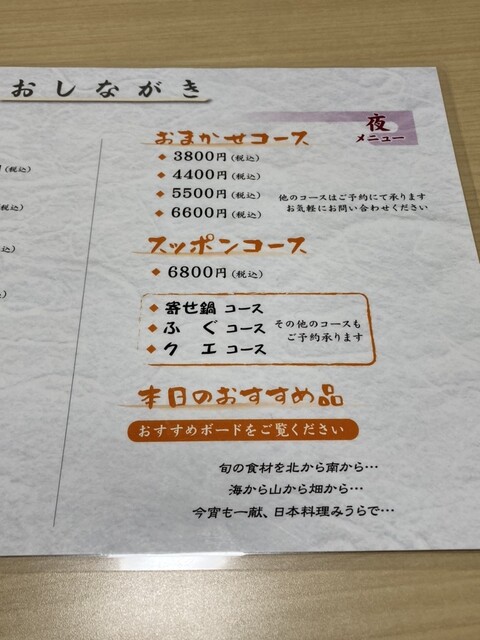 おしながき
夜
メニュー
円(税込)
(税込)
込)
)
おまかせコース
◆ 3800円(税込)
◆ 4400円(税込)
◆ 5500円(税込)
◆ 6600円(税込)
他のコースはご予約にて承ります
お気軽にお問い合わせください
スッポンコース
◆ 6800円(税込)
◆ 寄せ鍋 コース
◆ ふぐ コース
◆ クエ コース
その他のコースも
ご予約承ります
本日のおすすめ品
おすすめボードをご覧ください
旬の食材を北から南から…
海から山から畑から…
今宵も一献、日本料理みうらで…